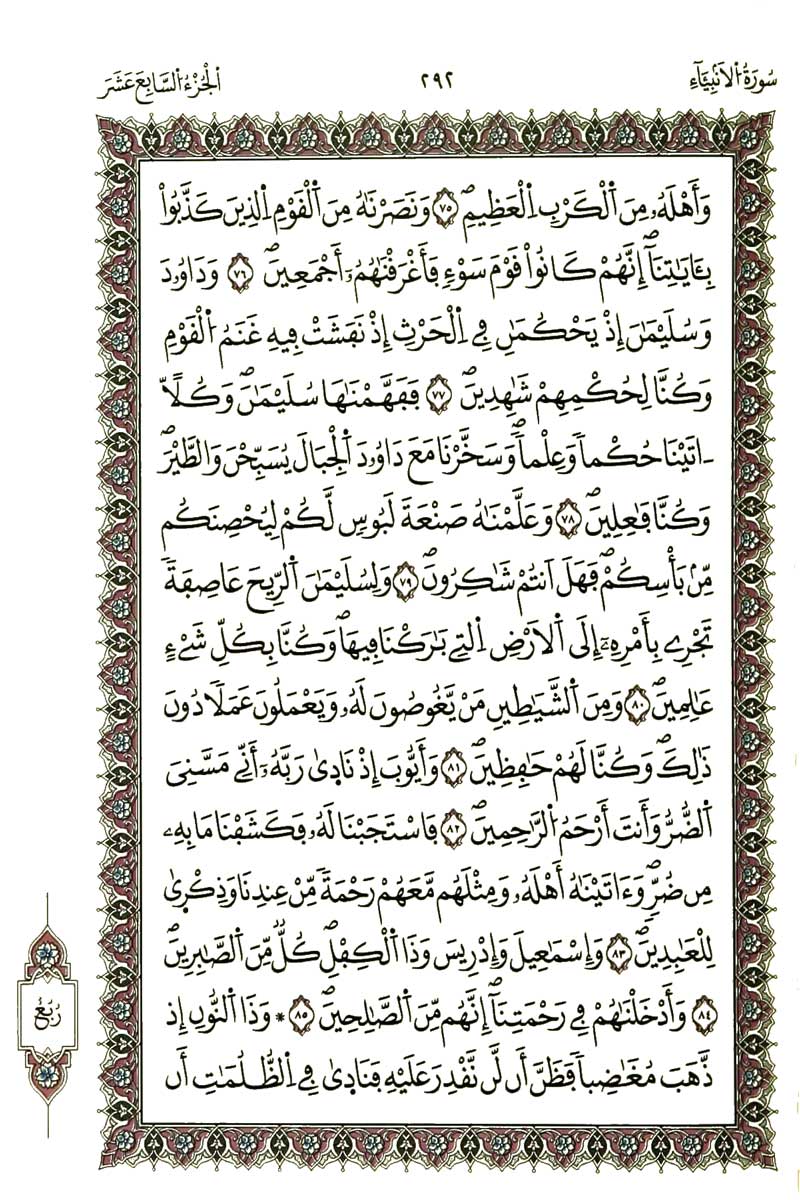 سُورَةُ الْأَنْبِيَاءِ
٢٩٢
اَلْجُزْءُ السَّابِعَ عَشَرَ
وَأَهْلَهُۥ مِنَ اَ۬لْكَرْبِ اِ۬لْعَظِيمِۖ ٧٥ وَنَصَرْنَٰهُ مِنَ اَ۬لْقَوْمِ اِ۬لذِينَ كَذَّبُواْ
بِـَٔايَٰتِنَآۖ إِنَّهُمْ كَانُواْ قَوْمَ سَوْءٖ فَأَغْرَقْنَٰهُمُۥٓ أَجْمَعِينَۖ ٧٦ وَدَاوُۥدَ
وَسُلَيْمَٰنَ إِذْ يَحْكُمَٰنِ فِے اِ۬لْحَرْثِ إِذْ نَفَشَتْ فِيهِ غَنَمُ اُ۬لْقَوْمِ
وَكُنَّا لِحُكْمِهِمْ شَٰهِدِينَۖ ٧٧ فَفَهَّمْنَٰهَا سُلَيْمَٰنَۖ وَكُلًّا
ـ اتَيْنَا حُكْماٗ وَعِلْماٗۖ وَسَخَّرْنَا مَعَ دَاوُۥدَ اَ۬لْجِبَالَ يُسَبِّحْنَ وَالطَّيْرَۖ
وَكُنَّا فَٰعِلِينَۖ ٧٨ وَعَلَّمْنَٰهُ صَنْعَةَ لَبُوسٖ لَّكُمْ لِيُحْصِنَكُم
مِّنۢ بَأْسِكُمْۖ فَهَلَ اَنتُمْ شَٰكِرُونَۖ ٧٩ وَلِسُلَيْمَٰنَ اَ۬لرِّيحَ عَاصِفَةٗ
تَجْرِے بِأَمْرِهِۦٓ إِلَى اَ۬لَارْضِ اِ۬لتِے بَٰرَكْنَا فِيهَاۖ وَكُنَّا بِكُلِّ شَےْءٍ
عَٰلِمِينَۖ ٨٠ وَمِنَ اَ۬لشَّيَٰطِينِ مَنْ يَّغُوصُونَ لَهُۥ وَيَعْمَلُونَ عَمَلاٗ دُونَ
ذَٰلِكَۖ وَكُنَّا لَهُمْ حَٰفِظِينَۖ ٨١ وَأَيُّوبَ إِذْ نَادَىٰ رَبَّهُۥٓ أَنِّے مَسَّنِيَ
اَ۬لضُّرُّ وَأَنتَ أَرْحَمُ اُ۬لرَّٰحِمِينَۖ ٨٢ فَاسْتَجَبْنَا لَهُۥ فَكَشَفْنَا مَا بِهِۦ
مِن ضُرّٖۖ وَءَاتَيْنَٰهُ أَهْلَهُۥ وَمِثْلَهُم مَّعَهُمْ رَحْمَةٗ مِّنْ عِندِنَا وَذِكْرَىٰ
لِلْعَٰبِدِينَۖ ٨٣ وَإِسْمَٰعِيلَ وَإِدْرِيسَ وَذَا اَ۬لْكِفْلِۖ كُلّٞ مِّنَ اَ۬لصَّٰبِرِينَۖ
٨٤ وَأَدْخَلْنَٰهُمْ فِے رَحْمَتِنَآۖ إِنَّهُم مِّنَ اَ۬لصَّٰلِحِينَۖ ٨٥ * وَذَا اَ۬لنُّونِ إِذ
ذَّهَبَ مُغَٰضِباٗ فَظَنَّ أَن لَّن نَّقْدِرَ عَلَيْهِ فَنَادَىٰ فِے اِ۬لظُّلُمَٰتِ أَن
رُبُعُ